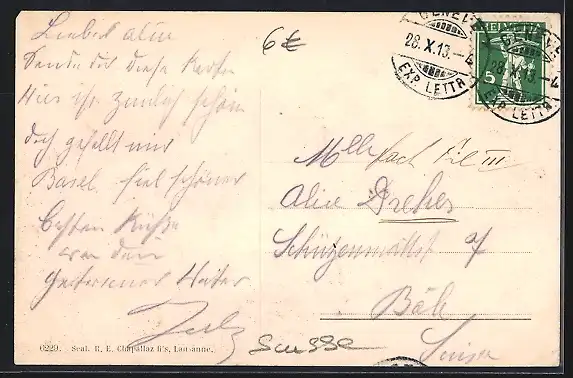 Liebes Alice
Sende dir diese Karte
Hier ist ziemlich schön
doch gefällt mir
Basel viel schöner
besten Küsse
von dein
Vater
6€
GENEVE
28.X.13.-4
EXP. LETTR.
HELVETIA
5
Mlle
Alice Dreher
Schützenmattst 7
Bâle
Suisse
Suisse
6229. Seal. R. E. Chapallaz fils, Lausanne.